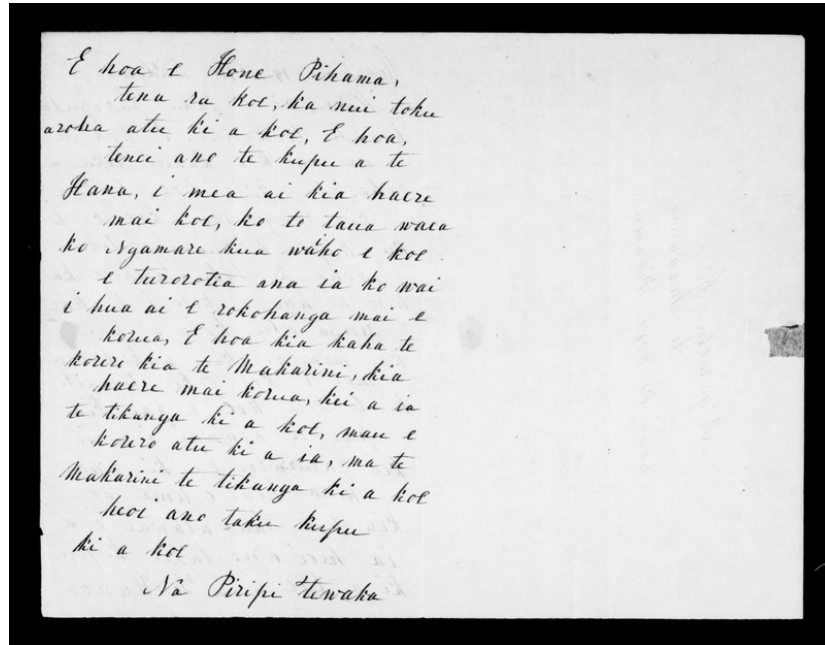 E hoa e Hone Pihama,
tena ra koe, ka nui toku
aroha atu ki a koe, E hoa,
tenei ano te kupu a te
Hana, i mea ai kia haere
mai koe, ko to taua waea
ko Ngamare kua waho e koe
e turorotia ana ia ko wai
i hua ai e rokohanga mai e
korua, E hoa kia kaha te
korero kia te Makarini, kia
haere mai korua, kei a ia
te tikanga ki a koe, mau e
korero atu ki a ia, ma te
Makarini te tikanga ki a koe
heoi ano taku kupu
ki a koe
Na Piripi tewaka